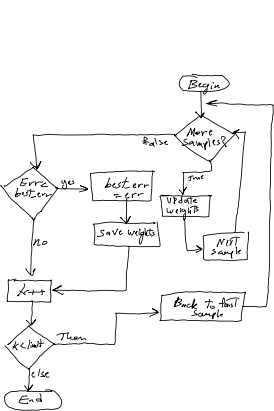 Begin
More
samples?
False
True
Update
weights
Next
Sample
Err<
best_err
yes
best_err
= err
save weights
no
k++
Back to first
sample
k<limit
Then
else
End